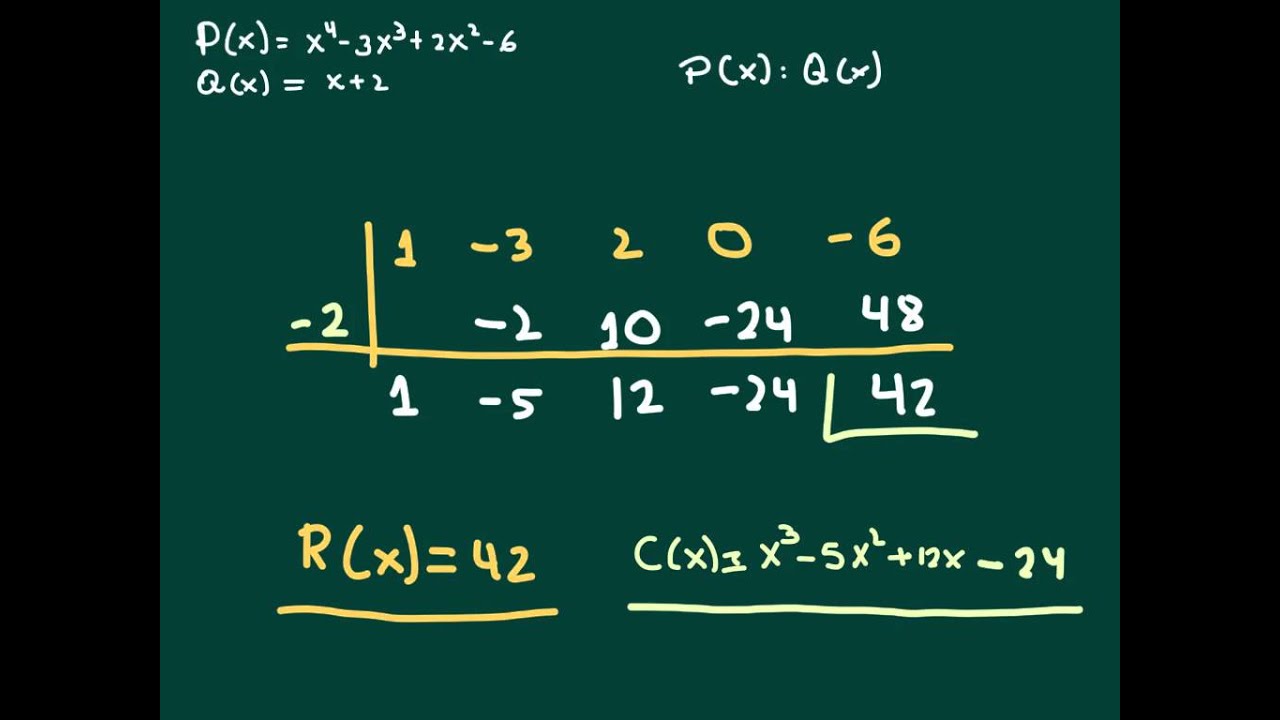 P(x) = x⁴-3x³+2x²-6
Q(x) = x+2
P(x) : Q(x)
1 -3 2 0 -6
-2 -2 10 -24 48
1 -5 12 -24 42
R(x) = 42
C(x) = x³-5x²+12x-24